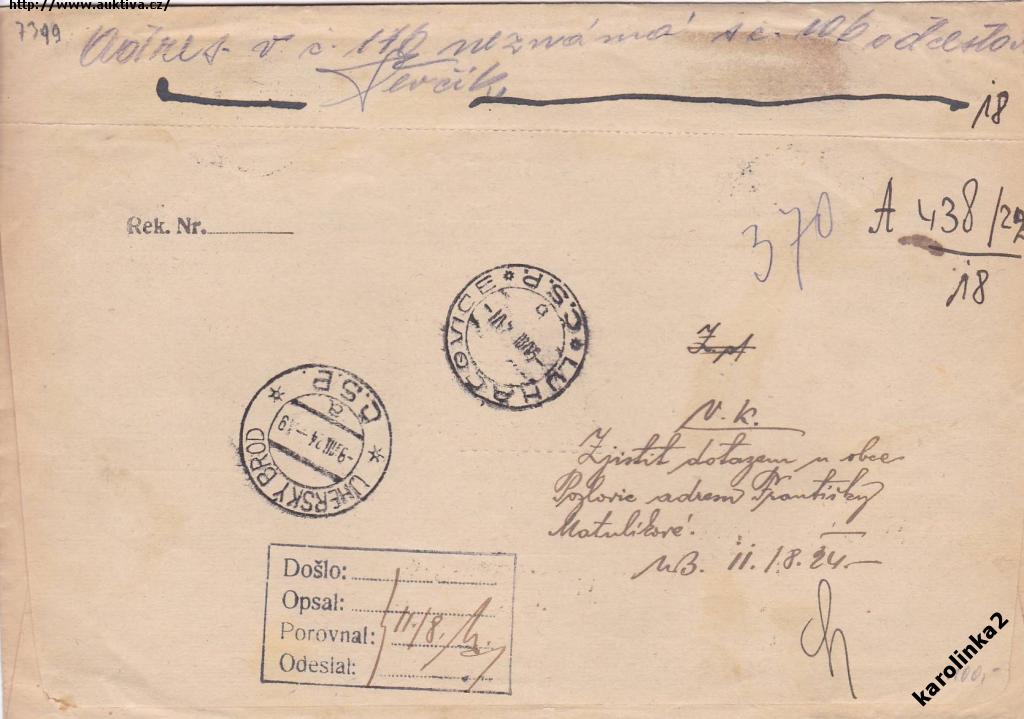 http://www.auktiva.cz/
7399
Adres. v č. 176 neznámá s č. 106 odcestov
Ševčík
18
Rek. Nr.
370
A 438/24
18
LUHAČOVICE
Č.S.P.
a
UHERSKÝ BROD
Č.S.P.
a
-9.VIII.24-19
V. k.
Zjistit dotazem u obce
Pozlovic adresu Františky
Matulíkové.
UB. 11./8. 24.-
Došlo:
Opsal:
Porovnal: 11./8.
Odeslal:
100,-
karolinka2